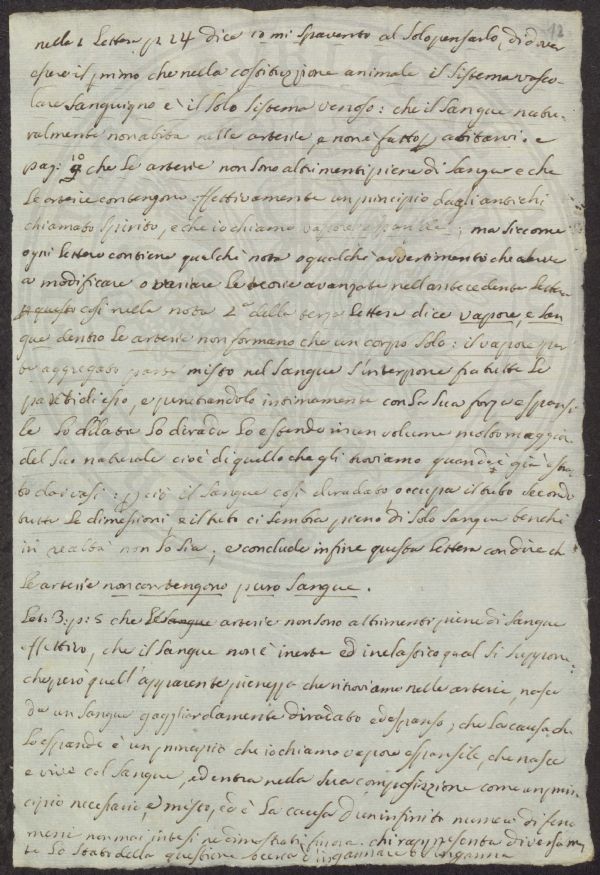 12
nella 1 Lettera p. 24 dice io mi spavento al solo pensarlo, di dover
essere il primo che nella costituzione animale il sistema vasco-
lare sanguigno è il solo sistema venoso: che il sangue natu-
ralmente non abita nelle arterie, e non è fatto p abitarvi. e
pag: 10 che le arterie non sono altrimenti piene di sangue e che
le arterie contengono effettivamente un principio dagli antichi
chiamato spirito, e che io chiamo vapore espansile; ma siccome
ogni Lettera contiene qualche nota o qualche avvertimento che serve
a modificare o variare le teorie avanzate nell'antecedente Lettera
p questo così nella nota 2.a della terza Lettera dice vapore, e san
gue dentro le arterie non formano che un corpo solo: il vapore par
te aggregato parte misto nel sangue s'interpone fra tutte le
parti di esso, e penetrandolo intimamente con la sua forza espansi
le lo dilata lo dirada lo estende in un volume molto maggior
del suo naturale cioè di quello che gli troviamo quando è già usci
to dai vasi: p ciò il sangue così diradato occupa il tubo secondo
tutte le dimensioni, e il tubo ci sembra pieno di solo sangue benchè
in realtà non lo sia; e conclude infine questa Lettera con dire ch
le arterie non contengono puro sangue.
Let: 3: p: 5 che le sangue arterie non sono altrimenti piene di sangue
effettivo, che il sangue non è inerte ed inelastico qual si suppone
che però quell'apparente pienezza che ritroviamo nelle arterie, nasce
da un sangue gagliardamente diradato ed espanso; che la causa che
lo espande è un principio che io chiamo vapore espansile, che nasce
e vive col sangue, ed entra nella sua composizione come un prin
cipio necessario, e misto, ed è la causa d'un infinito numero di feno
meni non mai intesi ne dimostrati finora. chi rappresenta diversamen
te lo stato della questione cerca d'ingannare o s'inganna